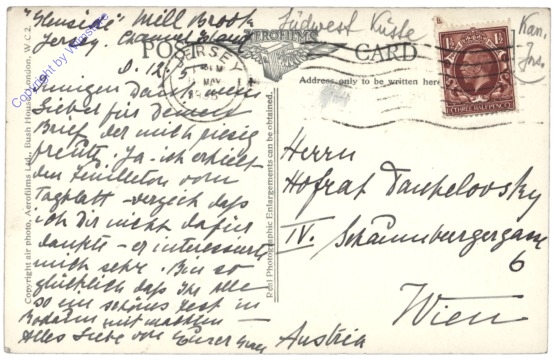 "Glenside" Mill Brook
Jersey. Channel Island
Südwest Küste
Kan.
Ins.
POST CARD
AEROFILMS
JERSEY
MAY
Address only to be written here
1½
THREE HALFPENCE
D. 12.
Innigen Dank mein
Lieber für Deinen
Brief, der mich riesig
freute. Ja - ich erhielt
den Feuilleton vom
Tagblatt - verzeih daß
ich Dir nicht dafür
dankte - er interessierte
mich sehr. Bin so
glücklich daß Ihr Alle
so ein schönes Fest in
mitmachten
Alles Liebe von Eurer
Herrn
Hofrat
IV. Schaumburgergasse
6
Wien
Austria
Copyright air photo, Aerofilms Ltd., Bush House, London, W.C.2.
Real Photographic Enlargements can be obtained.
Copyright by